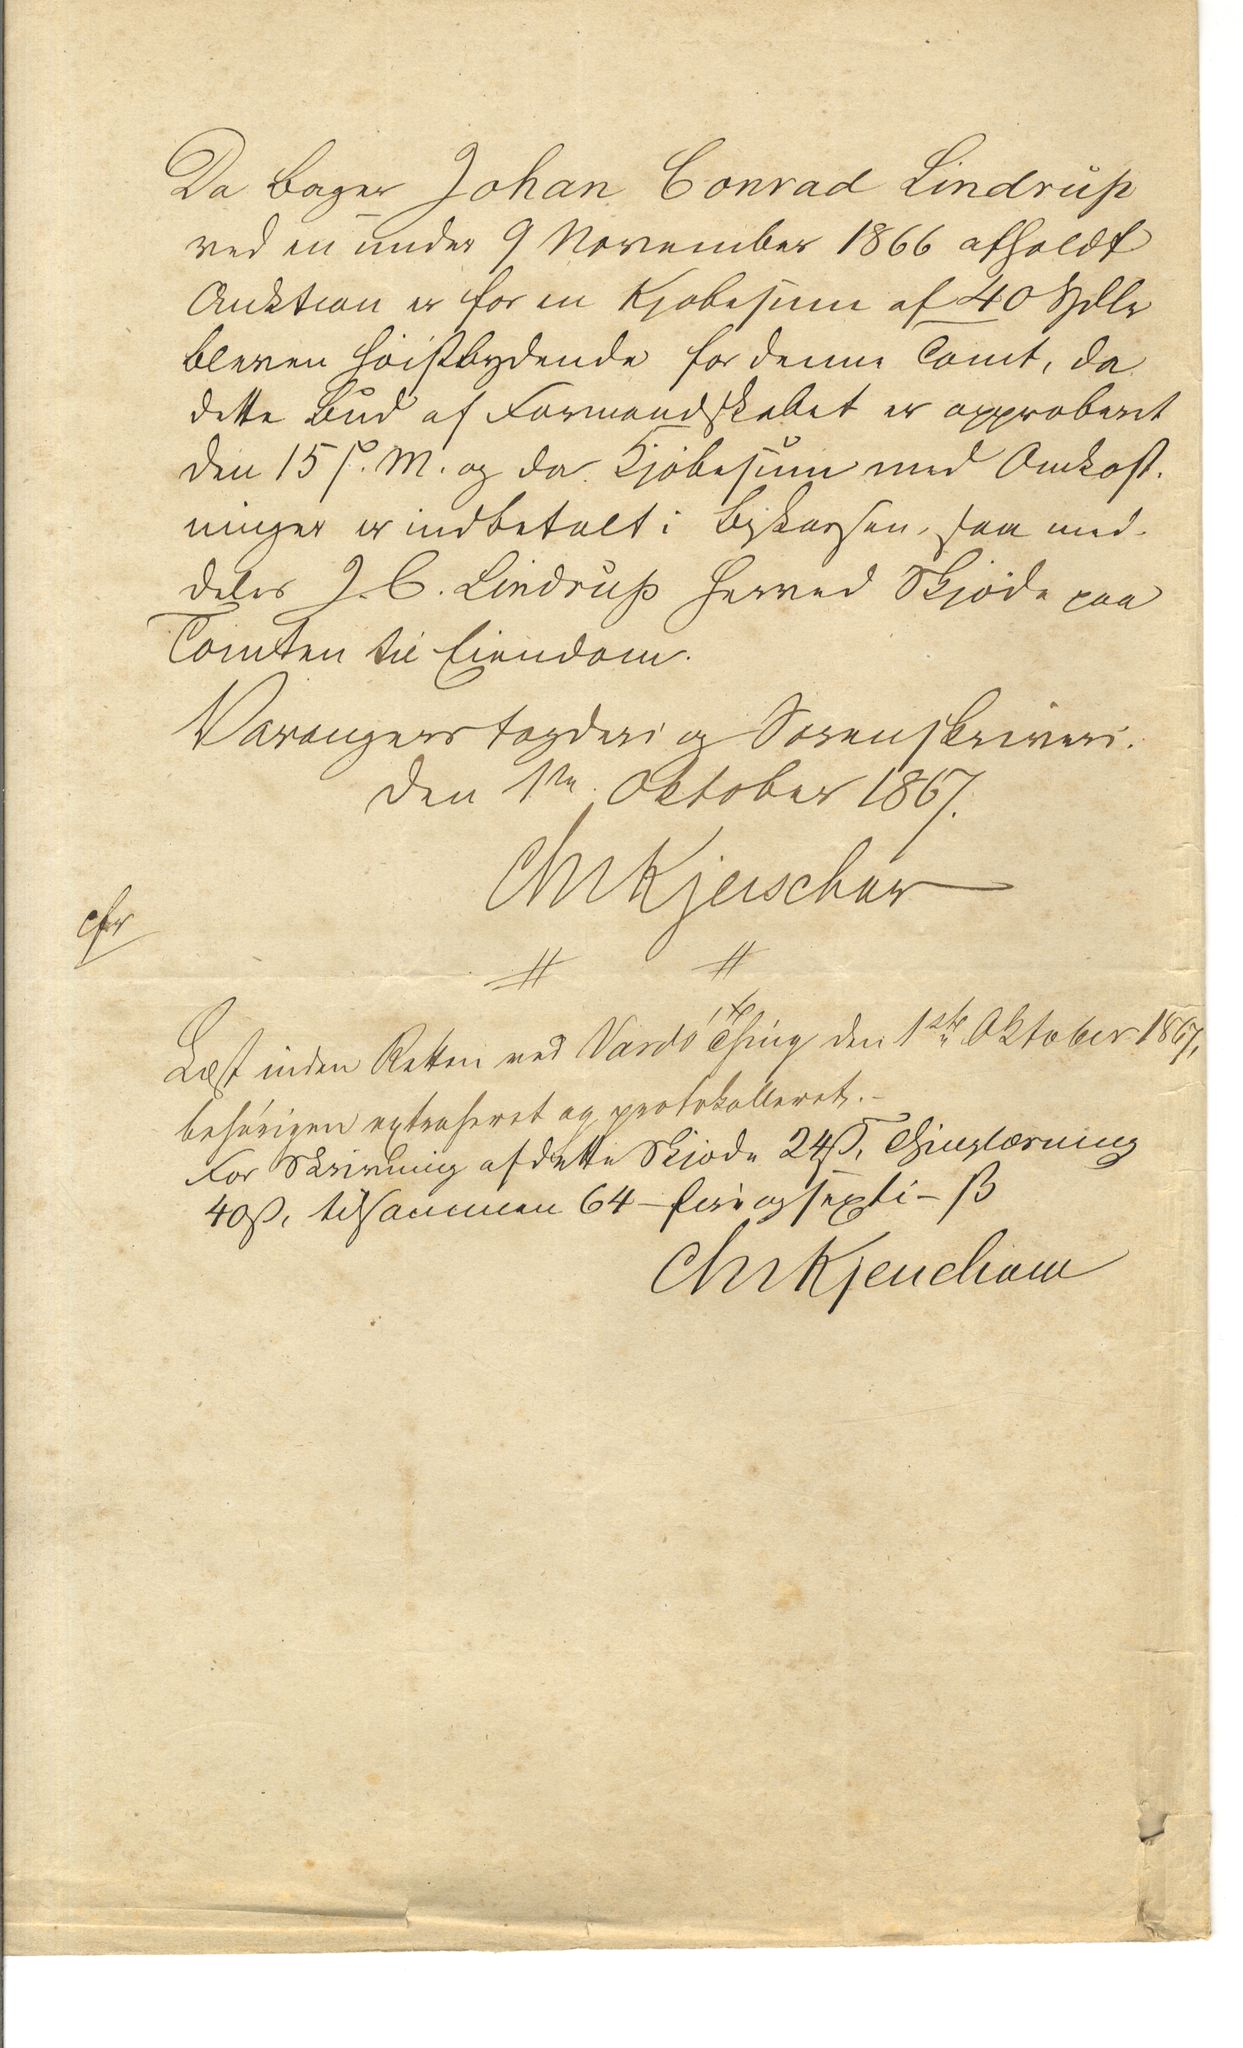 Da Bager Johan Conrad Lindrup
ved en under 9 November 1866 afholdt
Auktion er for en Kjøbesum af 40 Spdlr
bleven høistbydende for denne Tomt, da
dette Bud af Formandskabet er approberet
den 15 s. M. og da Kjøbesum med Omkost-
ninger er indbetalt i Bykassen, saa med-
deles J. C. Lindrup herved Skjøde paa
Tomten til Eiendom.
Varangers fogderi og Sorenskriveri.
den 1ste Oktober 1867.
Kjerschow
cfr
Læst inden Retten ved Vardö Thing den 1ste Oktober 1867,
behørigen extraheret og protokolleret.-
For Skrivning af dette Skjøde 24 ß, Thinglæsning
40 ß, tilsammen 64 - fire og sexti - ß
Kjerschow